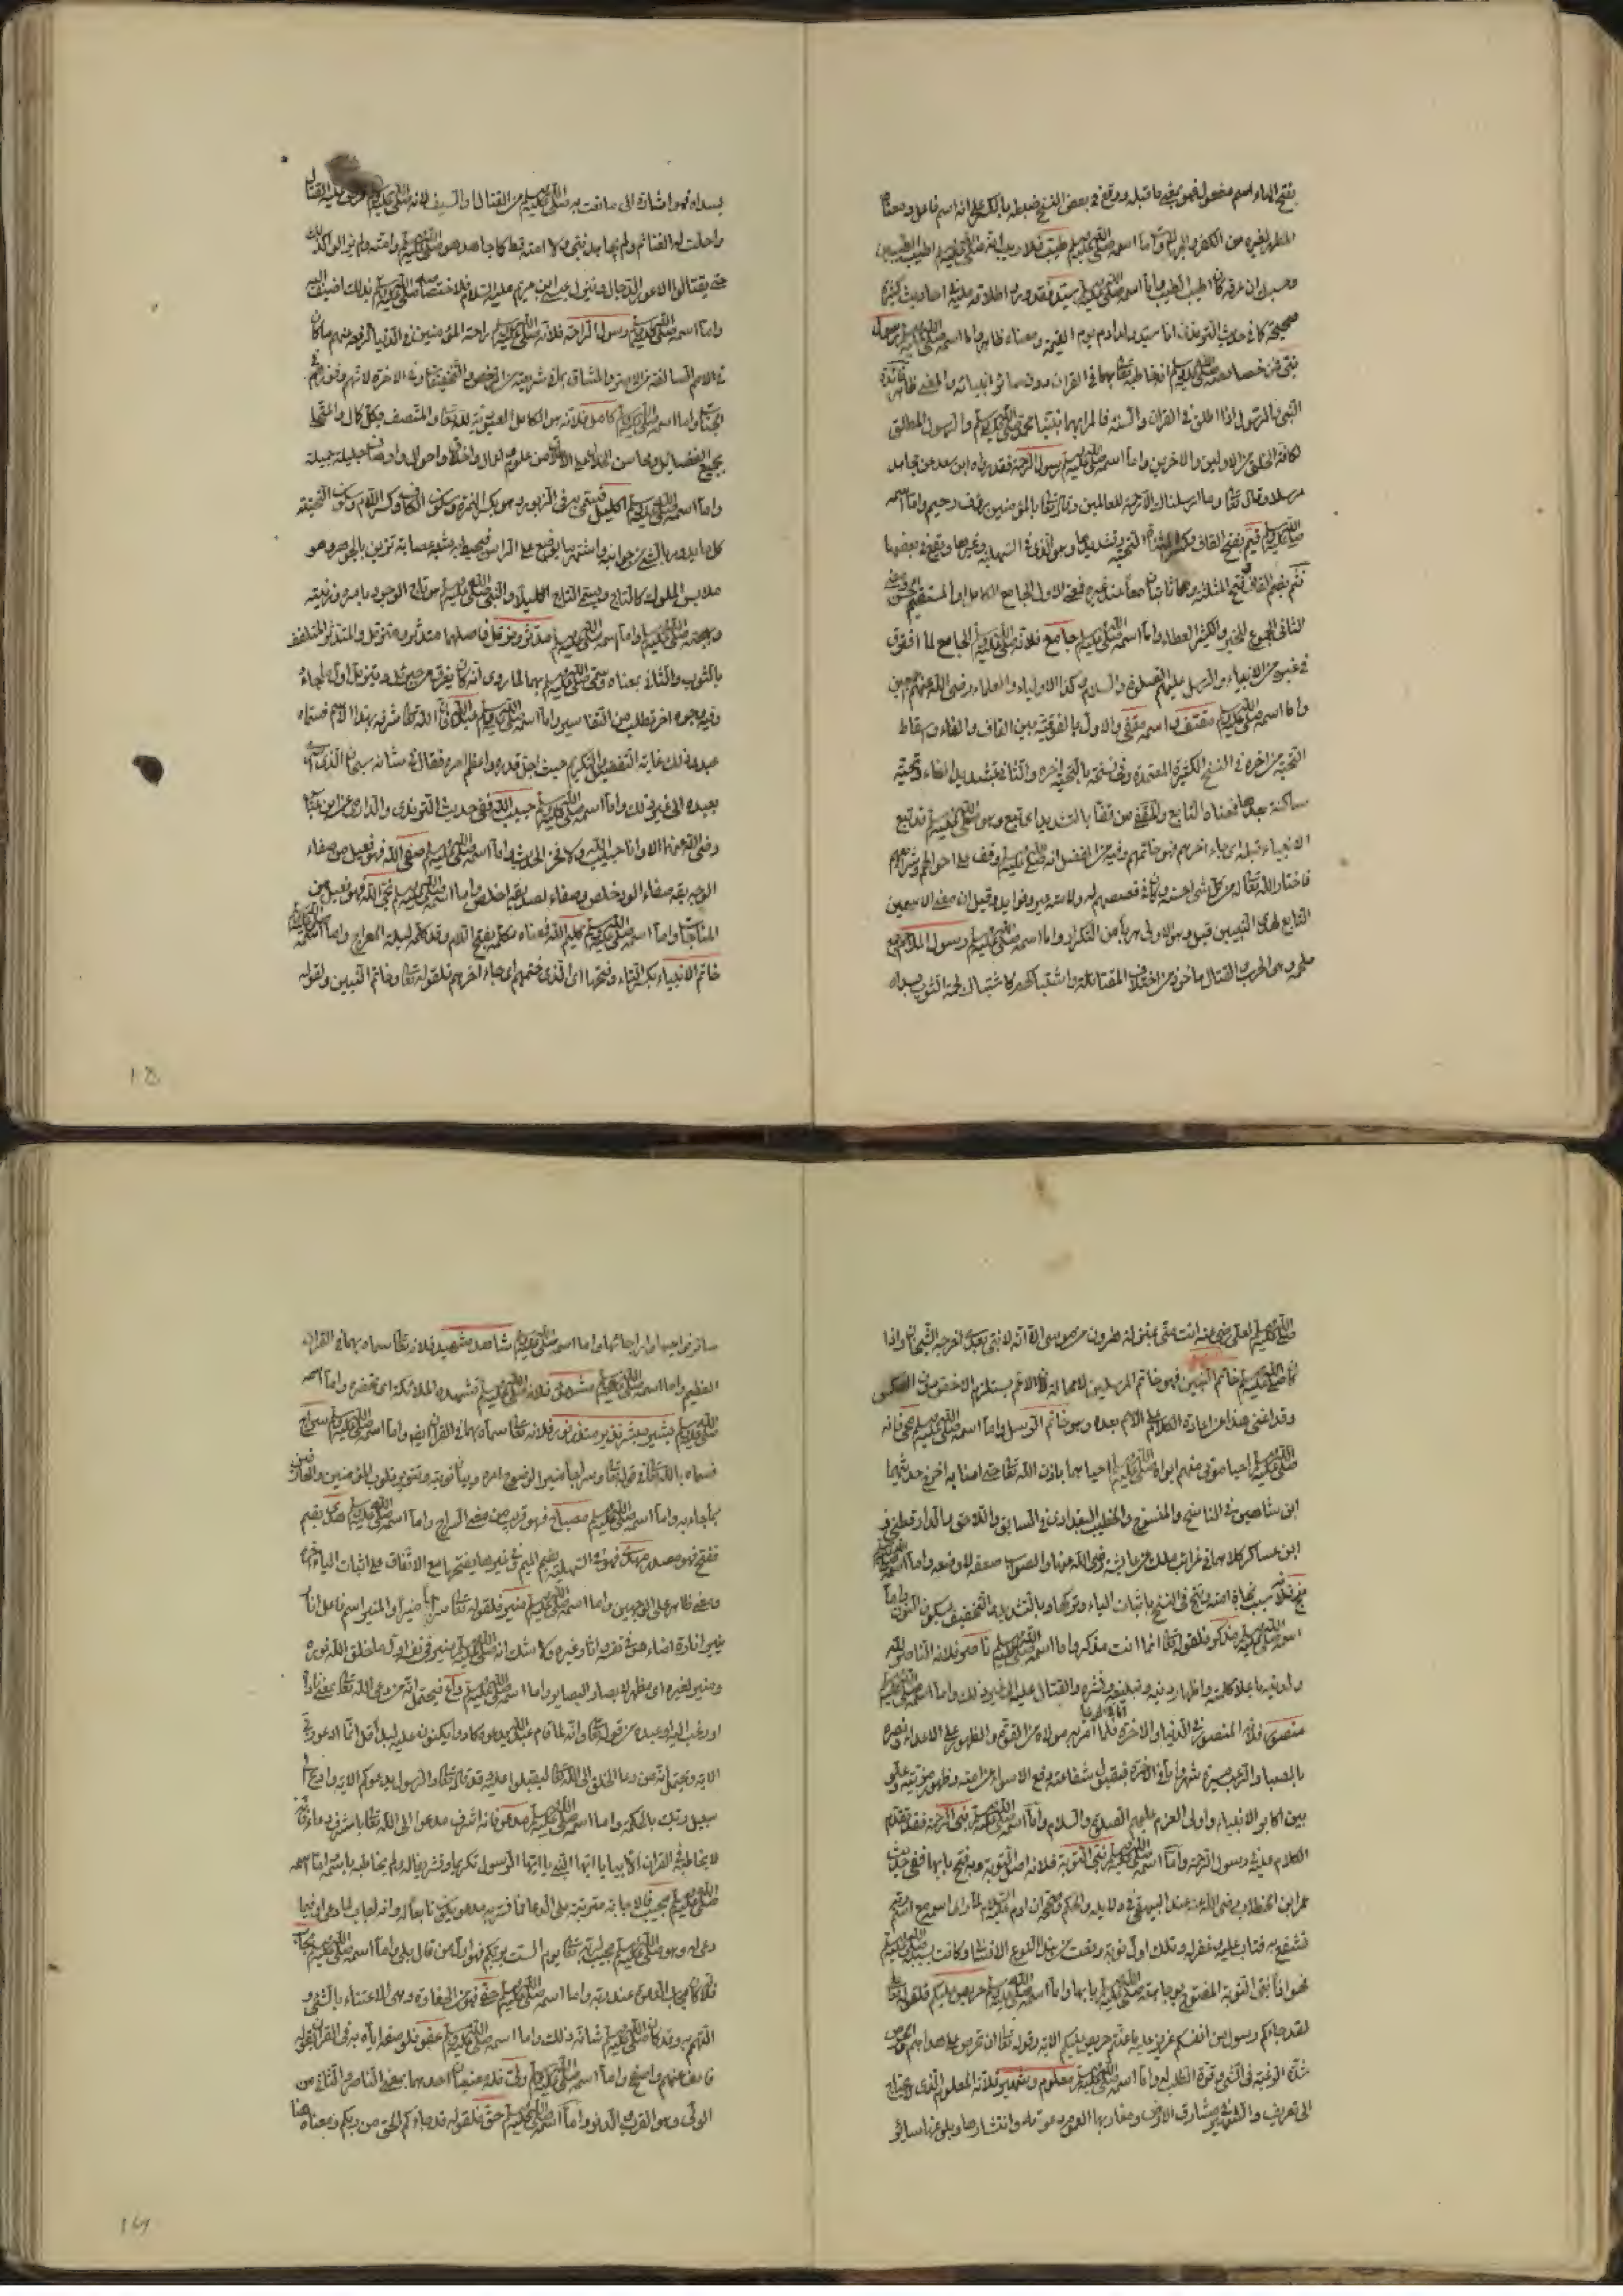 بفتح الهاء اسم مفعول فهو بمعنى ما قبله ووقع في بعض النسخ ضبطه بالكسر على انه اسم فاعل ومعناه
المطهر لغيره من الكفر واما اسمه صلى الله عليه وسلم طيب فلا ريب انه صلى الله عليه وسلم اطيب الطيبين
وحسبك ان عرقه كان اطيب الطيب واما اسمه صلى الله عليه وسلم سيد فقد ورد اطلاقه عليه في احاديث كثيرة
صحيحة كما في حديث الترمذي انا سيد ولد ادم يوم القيمة ومعناه ظاهر واما اسمه صلى الله عليه وسلم رسول
نبي فمن خصائصه صلى الله عليه وسلم ان خاطبه تعالى بهما في القران دون سائر انبيائه والمعنى ظاهر
النبي والرسول اذا اطلق في القران والسنة فالمراد بهما نبينا محمد صلى الله عليه وسلم والرسول المطلق
لكافة الخلق من الاولين والاخرين واما اسمه صلى الله عليه وسلم رسول الرحمة فقد رواه ابن سعد عن مجاهد
مرسلا وقال تعالى وما ارسلناك الا رحمة للعالمين وقال تعالى بالمؤمنين رؤف رحيم واما اسمه
صلى الله عليه وسلم قيم بفتح القاف وكسر التحتية وتشديدها وهو الذي في السهلية وغيرها ووقع في بعضها
قثم بضم القاف وفتح المثلثة وهما ثابتان معا عند غيره فمعنى الاول الجامع الكامل او المستقيم
الثاني الجموع للخير والكثير العطاء واما اسمه صلى الله عليه وسلم جامع فلانه صلى الله عليه وسلم الجامع لما افترق
في غيره من الانبياء والرسل عليهم الصلوة والسلام وكذا الاولياء والعلماء رضي الله عنهم اجمعين
واما اسمه صلى الله عليه وسلم مقتف واسمه مقفى والاول بالفوقية بين القاف والفاء وباسقاط
التحتية من اخره في النسخ الكثيرة المعتمدة وفي نسخة بالتحتية اخره والثاني بتشديد الفاء وتحتية
ساكنة بعدها فمعناه التابع والمقفى من قفا بالتشديد اي تبع وهو صلى الله عليه وسلم قد تبع
الانبياء قبله اي جاء اخرهم فهو خاتمهم وفيه من الفضل انه صلى الله عليه وسلم وقف على احوالهم وشرائعهم
فاختار الله تعالى له من كل شيء احسنه وكان في قصصهم له ولامته عبر وفوائد وقيل ان معنى الاسمين
التابع لهدي النبيين قبله وهو الاولى هربا من التكرار واما اسمه صلى الله عليه وسلم رسول الملاحم جمع
ملحمة وهي الحرب والقتال ماخوذ من اختلاف المقاتلة واشتباكهم كاشتباك لحمة الثوب بسداه
بسداه فهو اشارة الى ما بعث به صلى الله عليه وسلم من القتال والسيف لانه صلى الله عليه وسلم فرض عليه القتال
واحلت له الغنائم ولم يجاهد نبي ولا امته قط كما جاهد هو صلى الله عليه وسلم وامته ولم يزالوا كذلك
حتى يقتلوا الاعور الدجال وينزل عيسى ابن مريم عليه السلام فلاختصاصه صلى الله عليه وسلم بذلك اضيف اليه
واما اسمه صلى الله عليه وسلم رسول الراحة فلانه صلى الله عليه وسلم راحة المؤمنين في الدنيا لرفعه عنهم ما كان
في الامم السالفة من الاصر والمشاق بما في شريعته من الرخص والتخفيفات وفي الاخرة
واما اسمه صلى الله عليه وسلم كامل فلانه هو الكامل العبودية لله تعالى والمتصف بكل كمال والمتحلي
بجميع الفضائل ومحاسن الخلال على الاطلاق من علوم واعمال واخلاق واحوال واوصاف جليلة جميلة
واما اسمه صلى الله عليه وسلم اكليل فسمي به في الزبور وهو بكسر الهمزة وسكون الكاف وكسر اللام وسكون التحتية
كل ما يدور بالشيء من جوانبه واشتهر بما يوضع على الراس فيحيط به شبه عصابة تزين بالجوهر وهو
ملابس الملوك كالتاج ويسمى التاج اكليلا والنبي صلى الله عليه وسلم هو تاج الوجود باسره وزينته
وبهجته صلى الله عليه وسلم واما اسمه صلى الله عليه وسلم مدثر ومزمل فاصلهما متدثر ومتزمل والمتدثر المتلفف
بالثوب والثاني بمعناه وسمي صلى الله عليه وسلم بهما لما روي انه كان يفرق من جبريل ويتزمل اول ما جاءه
وفيه وجوه اخر تطلب من التفاسير واما اسمه صلى الله عليه وسلم عبد الله فان الله تعالى شرفه بهذا الاسم فسماه
عبده وذلك غاية التفضيل والتكريم حيث اجل قدره واعظم امره فقال في شانه سبحان الذي اسرى
بعبده الى غير ذلك واما اسمه صلى الله عليه وسلم حبيب الله ففي حديث الترمذي والدارمي عن ابن عباس
رضي الله عنهما الا وانا حبيب الله ولا فخر الحديث واما اسمه صلى الله عليه وسلم صفي الله فهو فعيل من صفاء
المناجاة واما اسمه صلى الله عليه وسلم كليم الله فمعناه مكلمه بفتح اللام وقد كلمه ليلة المعراج واما اسمه صلى الله عليه وسلم
خاتم الانبياء بكسر التاء وفتحها اي الذي ختمهم اي جاء اخرهم فلقوله تعالى وخاتم النبيين ولقوله
18
صلى الله عليه وسلم لعلي رضي الله عنه انت مني بمنزلة هارون من موسى الا انه لا نبي بعدي اخرجه الشيخان واذا
كان صلى الله عليه وسلم خاتم النبيين فهو خاتم المرسلين لا محالة لان الاعم يستلزم الاخص دون العكس
وقد اغنى هذا عن اعادة الكلام على الاسم بعده وهو خاتم الرسل واما اسمه صلى الله عليه وسلم محيي فانه
صلى الله عليه وسلم احيا موتى منهم ابواه صلى الله عليه وسلم احياهما باذن الله تعالى حتى امنا به اخرج حديثهما
ابن شاهين في الناسخ والمنسوخ والخطيب البغدادي في السابق واللاحق والدارقطني و
ابن عساكر كلاهما في غرائب ملك عن عائشة رضي الله عنها والصواب ضعفه لا وضعه واما اسمه صلى الله عليه وسلم
منج فلانه سبب نجاة امته
اسمه صلى الله عليه وسلم مذكر فلقوله تعالى انما انت مذكر واما اسمه صلى الله عليه وسلم ناصر فلانه الناصر لله
ولدينه باعلاء كلمته واظهار دينه وتبليغه ونشره والقتال عليه الى غير ذلك واما اسمه صلى الله عليه وسلم
منصور فلانه المنصور في الدنيا والاخرة
بالصبا والرعب مسيرة شهر واما في الاخرة فبقبول شفاعته ورفع الاسواء عن امته وظهور مزيته
بين اكابر الانبياء واولي العزم عليهم الصلوة والسلام واما اسمه صلى الله عليه وسلم نبي الرحمة فقد تقدم
الكلام عليه في رسول الرحمة واما اسمه صلى الله عليه وسلم نبي التوبة فلانه اصل التوبة وبه فتح بابها ففي حديث
عمر ابن الخطاب رضي الله عنه عند البيهقي في دلايله والحاكم وصححه ان ادم عليه السلام لما راى اسمه مع اسم ربه
تشفع به فتاب عليه وغفر له وتلك اول توبة وقعت من هذا النوع الانساني وكانت بسببه صلى الله عليه وسلم
فهو اذا نبي التوبة المفتوح بوجاهته صلى الله عليه وسلم بابها واما اسمه صلى الله عليه وسلم حريص عليكم فلقوله تعالى
لقد جاءكم رسول من انفسكم عزيز عليه ما عنتم حريص عليكم الاية وقوله تعالى ان تحرص على هداهم والحرص
شدة الرغبة في الشيء وقوة الطلب له واما اسمه صلى الله عليه وسلم معلوم وشهير فلانه المعلوم الذي لا يحتاج
الى تعريف والشهير في مشارق الارض ومغاربها لعموم دعوته وانتشارها وبلوغها سائر
سائر نواحيها وارجائها واما اسمه صلى الله عليه وسلم شاهد وشهيد فلانه تعالى سماه بهما في القران
العظيم واما اسمه صلى الله عليه وسلم مشهود فلانه صلى الله عليه وسلم تشهده الملائكة اي تحضره واما اسمه
صلى الله عليه وسلم بشير مبشر نذير منذر نور فلانه تعالى سماه بهما في القران واما اسمه صلى الله عليه وسلم سراج
فسماه به الله تعالى في قوله تعالى وسراجا منيرا لوضوح امره وبيان نبوته وتنوير قلوب المؤمنين والعارفين
بما جاء به واما اسمه صلى الله عليه وسلم مصباح فهو قريب من معنى السراج واما اسمه صلى الله عليه وسلم هدى بضم
ففتح فهو مصدر واما مهد فهو في السهلية بضم الميم وفي غيرها بفتحها مع الاتفاق على اثبات الياء اخره
ومعنى ظاهر على الوجهين واما اسمه صلى الله عليه وسلم منير فلقوله تعالى سراجا منيرا والمنير اسم فاعل انار
ينير انارة اضاء هو في نفسه وانار غيره ولا شك انه صلى الله عليه وسلم منير في نفسه اول ما خلق الله نوره
ومنير لغيره اي مظهر له بصائر البصائر واما اسمه صلى الله عليه وسلم داع فيحتمل انه من دعى الله تعالى بمعنى ناداه
او رغب اليه او عبده من قوله تعالى وانه لما قام عبد الله يدعوه كادوا يكونون عليه لبدا قل انما ادعو ربي
الاية ويحتمل انه من دعا الخلق الى الله تعالى ليقبلوا عليه وقد قال تعالى والرسول يدعوكم الاية وادع الى
سبيل ربك بالحكمة واما اسمه صلى الله عليه وسلم مدعو فانه اشرف مدعو الى الله تعالى باشرف دعاء فانه
لا يخاطبه في القران الا بيا ايها النبي يا ايها الرسول تكريما وتشريفا له ولم يخاطبه باسمه واما اسمه
صلى الله عليه وسلم مجيب فلان اجابة مترتبة على الدعاء
دعى له وهو صلى الله عليه وسلم مجيب لربه تعالى يوم الست بربكم فهو اول من قال بلى واما اسمه صلى الله عليه وسلم مجاب
فلانه كان مجاب الدعوة عند ربه واما اسمه صلى الله عليه وسلم حفي فهو من الحفاوة وهي الاعتناء بالشيء و
التهمم به وقد كان صلى الله عليه وسلم شانه ذلك واما اسمه صلى الله عليه وسلم عفو فلوصفه اياه به في القران بقوله
فاعف عنهم واصفح واما اسمه صلى الله عليه وسلم ولي فله معنيان احدهما بمعنى الناصر والثاني من
الولي وهو القرب والدنو واما اسمه صلى الله عليه وسلم حق فلقوله قد جاءكم الحق من ربكم ومعناه هنا